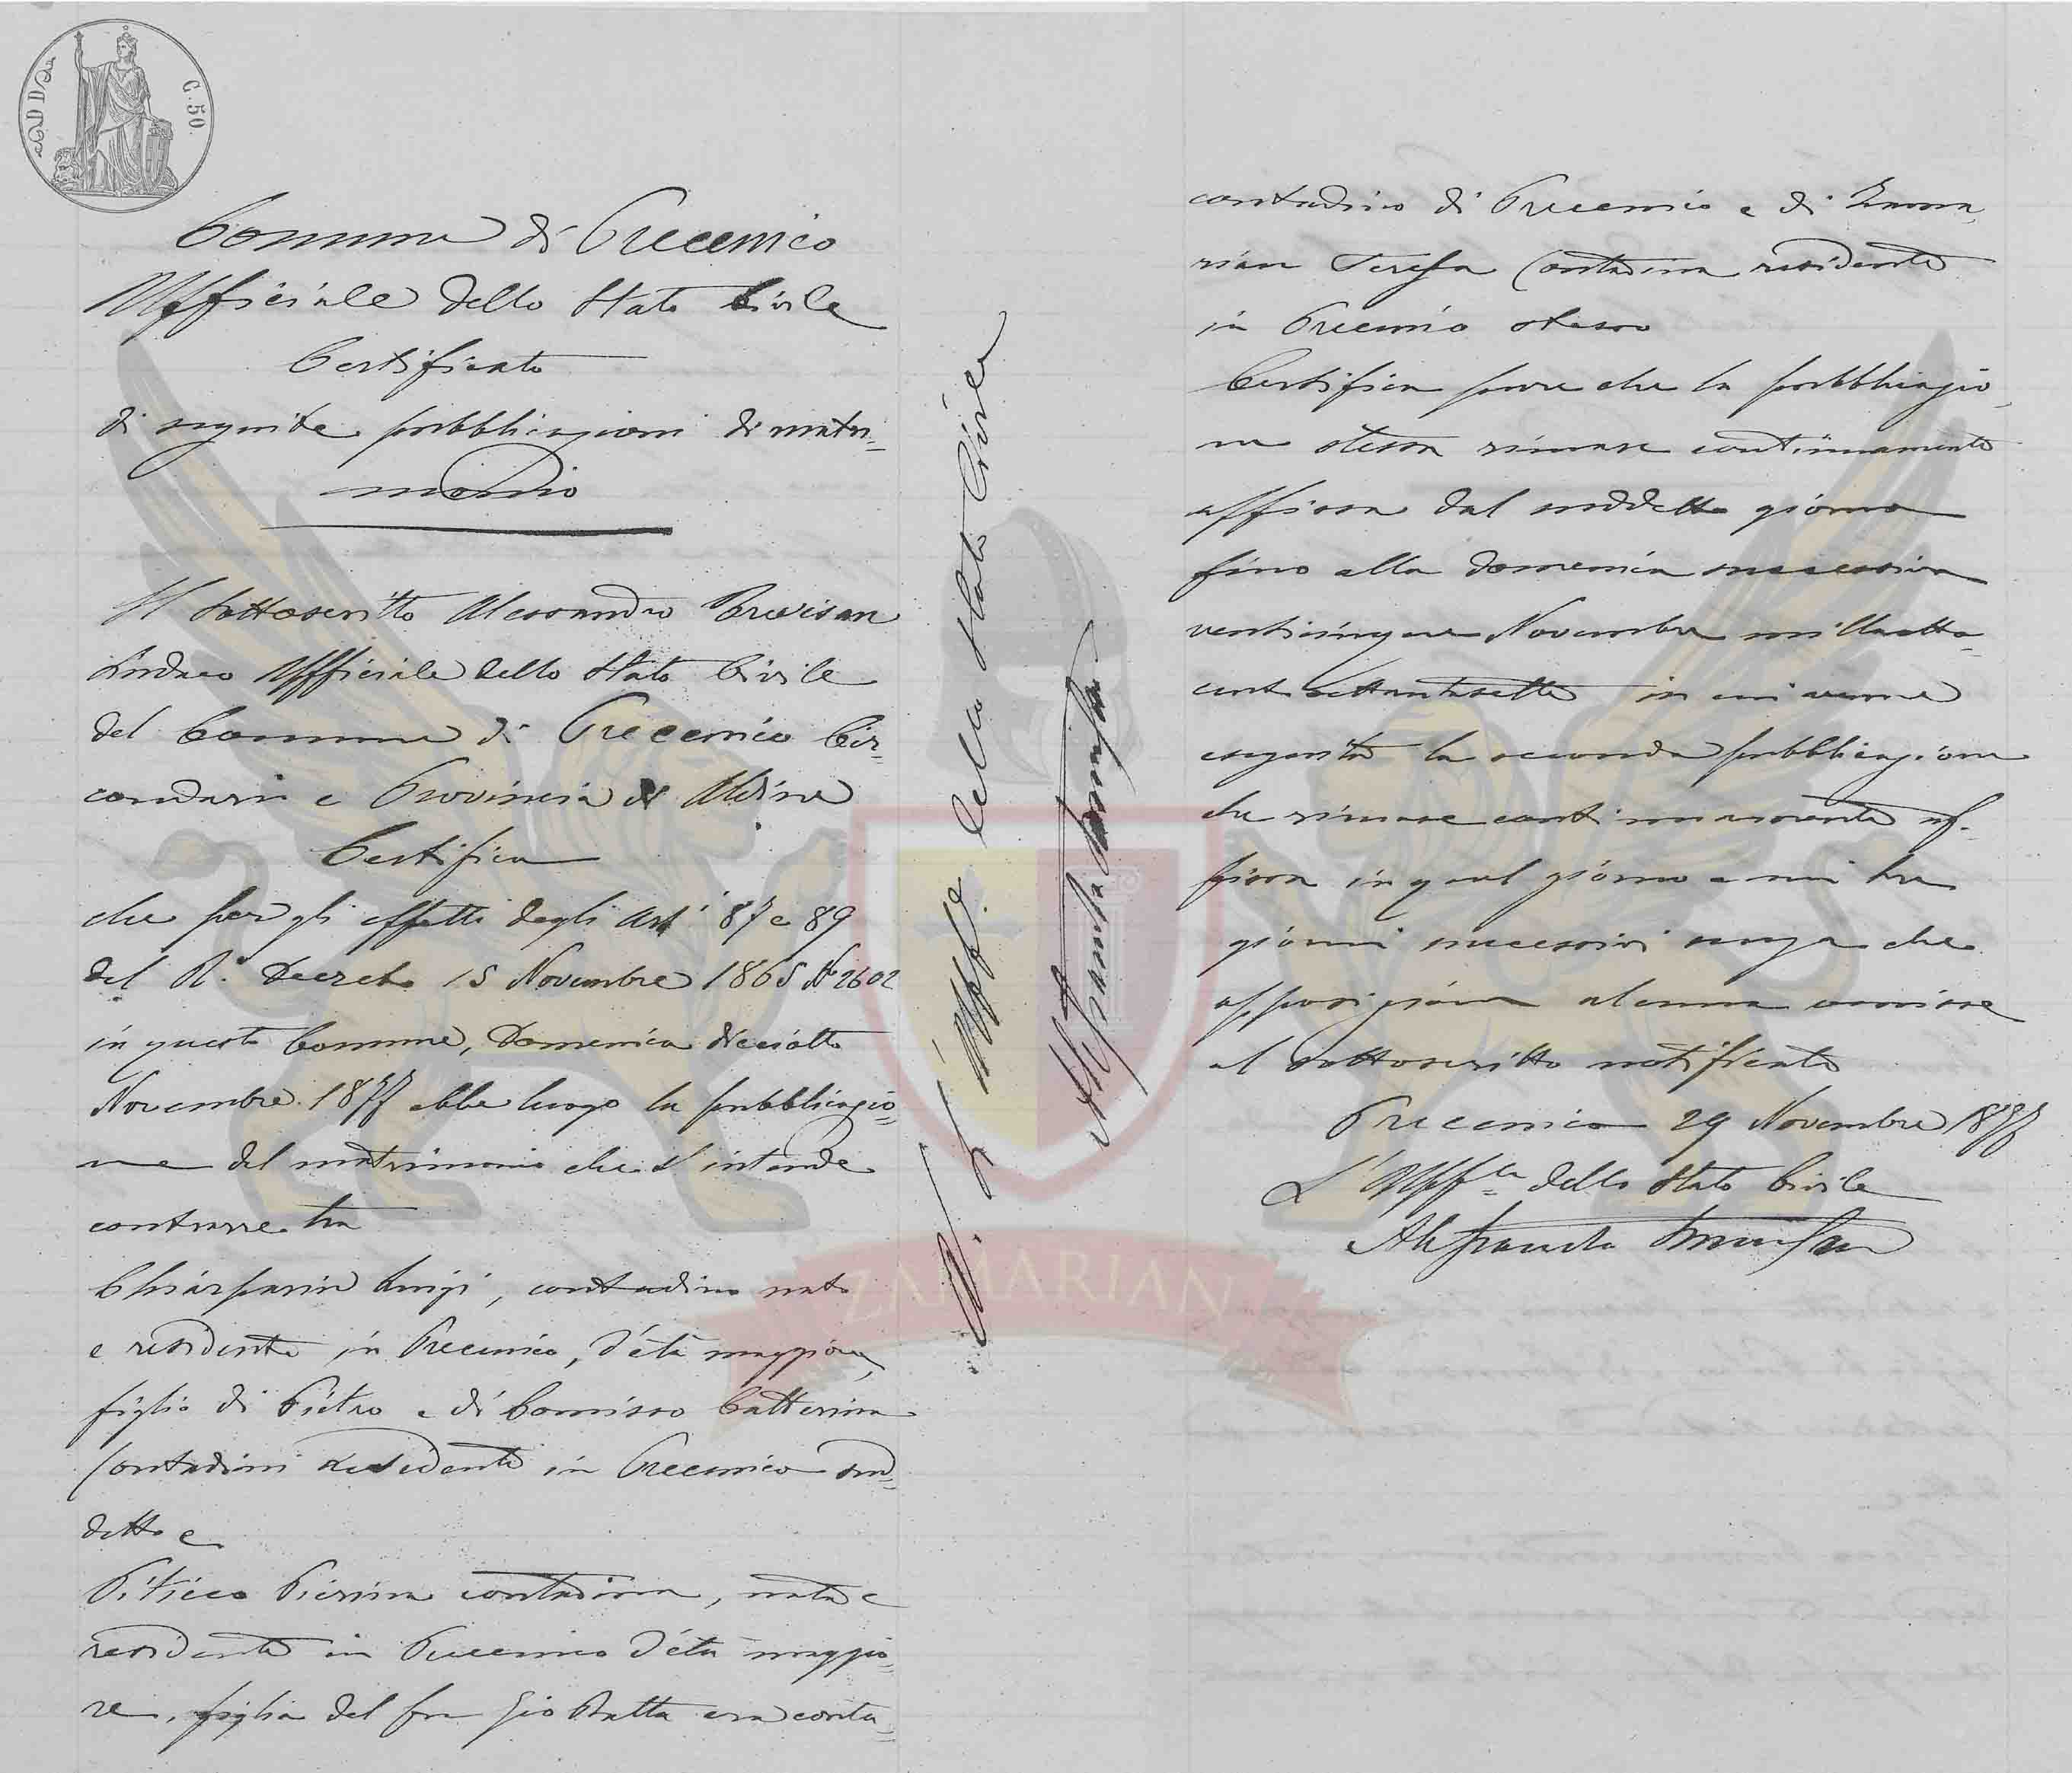 C. 50.
Comune di Precenico
Ufficiale dello Stato Civile
Certificato
di seguite pubblicazioni di matri=
monio
Il sottoscritto Alessandro Trevisan
Sindaco Ufficiale dello Stato Civile
del Comune di Precenico Cir=
condario e Provincia di Udine
Certifica
che per gli effetti degli Art.i 87 e 89
del R.o Decreto 15 Novembre 1865 No 2602
in questo Comune, Domenica dieciotto
Novembre 1877 ebbe luogo la pubblicazio=
ne del matrimonio che s'intende
contrarre tra
Chiarparin Luigi, contadino nato
e residente in Precenico, d'età maggiore,
figlio di Pietro e di Comisso Catterina
Contadini residenti in Precenico sud=
detto e
Piticco Pierina contadina, nata e
residente in Precenico d'età maggio=
re, figlia del fu Gio Batta era conta=
L'Uff.le dello Stato Civile
Alessandro Trevisan
contadino di Precenico e di Zama=
rian Teresa Contadina residente
in Precenico stesso
Certifica pure che la pubblicazio=
ne stessa rimase continuamente
affissa dal suddetto giorno
fino alla domenica successiva
venticinque Novembre milleotto=
centosettantasette in cui venne
eseguita la seconda pubblicazione
che rimase continuamente af=
fissa in quel giorno e nei tre
giorni successivi senza che
opposizione alcuna venisse
al sottoscritto notificata
Precenico 29 Novembre 1877
L'Uff.le dello Stato Civile
Alessandro Trevisan
ZAMARIAN